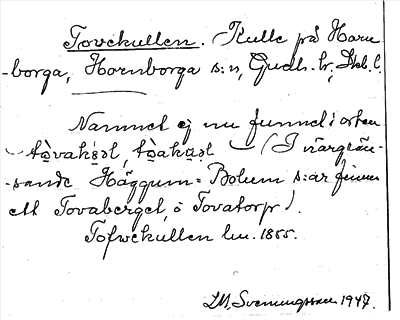 Tovekullen. Kulle på Horn-
-borga, Hornborga s:n, Gudh. hr, Skb. l.
Namnet ej nu funnet i orten
tòvakəl, tòakuəl (I närgrän-
-sande Häggum - Bolum s:ar finnes
ett Tovaberget o Tovatorp).
Tofwekullen lm. 1855.
LM. Svenungsson 1947.